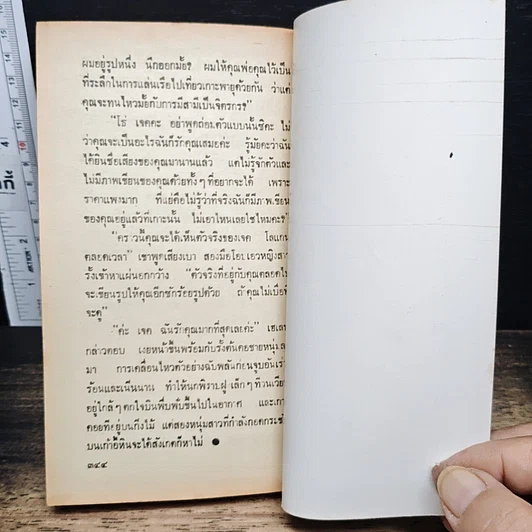 ผมอยู่รูปหนึ่ง นึกออกมั้ย? ผมให้คุณพ่อคุณไว้เป็น
ที่ระลึกในการแล่นเรือไปเที่ยวเกาะพายุด้วยกัน ว่าแต่
คุณจะทนไหวมั้ยกับการมีสามีเป็นจิตรกร?"
"โธ่ เจคคะ อย่าพูดถ่อมตัวแบบนั้นซิคะ ไม่
ว่าคุณจะเป็นอะไรฉันก็รักคุณเสมอค่ะ รู้มั้ยคะว่าฉัน
ได้ยินชื่อเสียงของคุณมานานแล้ว แต่ไม่รู้จักตัวและ
ไม่มีภาพเขียนของคุณด้วยทั้งๆ ที่อยากจะได้ เพราะ
ราคาแพงมาก ที่แย่คือไม่รู้ว่าที่จริงฉันก็มีภาพเขียน
ของคุณอยู่แล้วที่เกาะนั้น ไม่เอาไหนเลยใช่ไหมคะ?"
"คราวนี้คุณจะได้เห็นตัวจริงของเจค โลแกน
ตลอดเวลา" เขาพูดเสียงเบา สองมือโอบเอวหญิงสา
รั้งเข้าหาแผ่นอกกว้าง "ตัวจริงที่อยู่กับคุณตลอดไ
จะเขียนรูปให้คุณอีกซักร้อยรูปด้วย ถ้าคุณไม่เบื่อที่
จะดู"
"ค่ะ เจค ฉันรักคุณมากที่สุดเลยค่ะ" เฮเล
กล่าวตอบ เงยหน้าขึ้นพร้อมกับรั้งต้นคอชายหนุ่มล
มา การเคลื่อนไหวตัวอย่างฉับพลันก่อนจูบอันเร่า
ร้อนและเนิ่นนาน ทำให้นกพิราบฝูงเล็กๆ ที่วนเวีย
อยู่ใกล้ๆ ตกใจบินพึ่บพั่บขึ้นไปในอากาศ และเกา
คอยทีอยู่บนกิ่งไม้ แต่สองหนุ่มสาวที่กำลังกอดกระชั
บนเก้าอี้หินจะได้สังเกตก็หาไม่ ●
๓๔๔